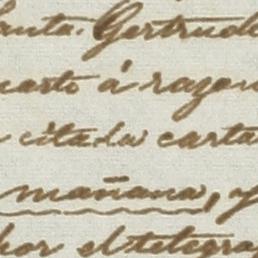 Santa. Gertrude
cuarto á razon
citada carta
mañana, y
por el telegra